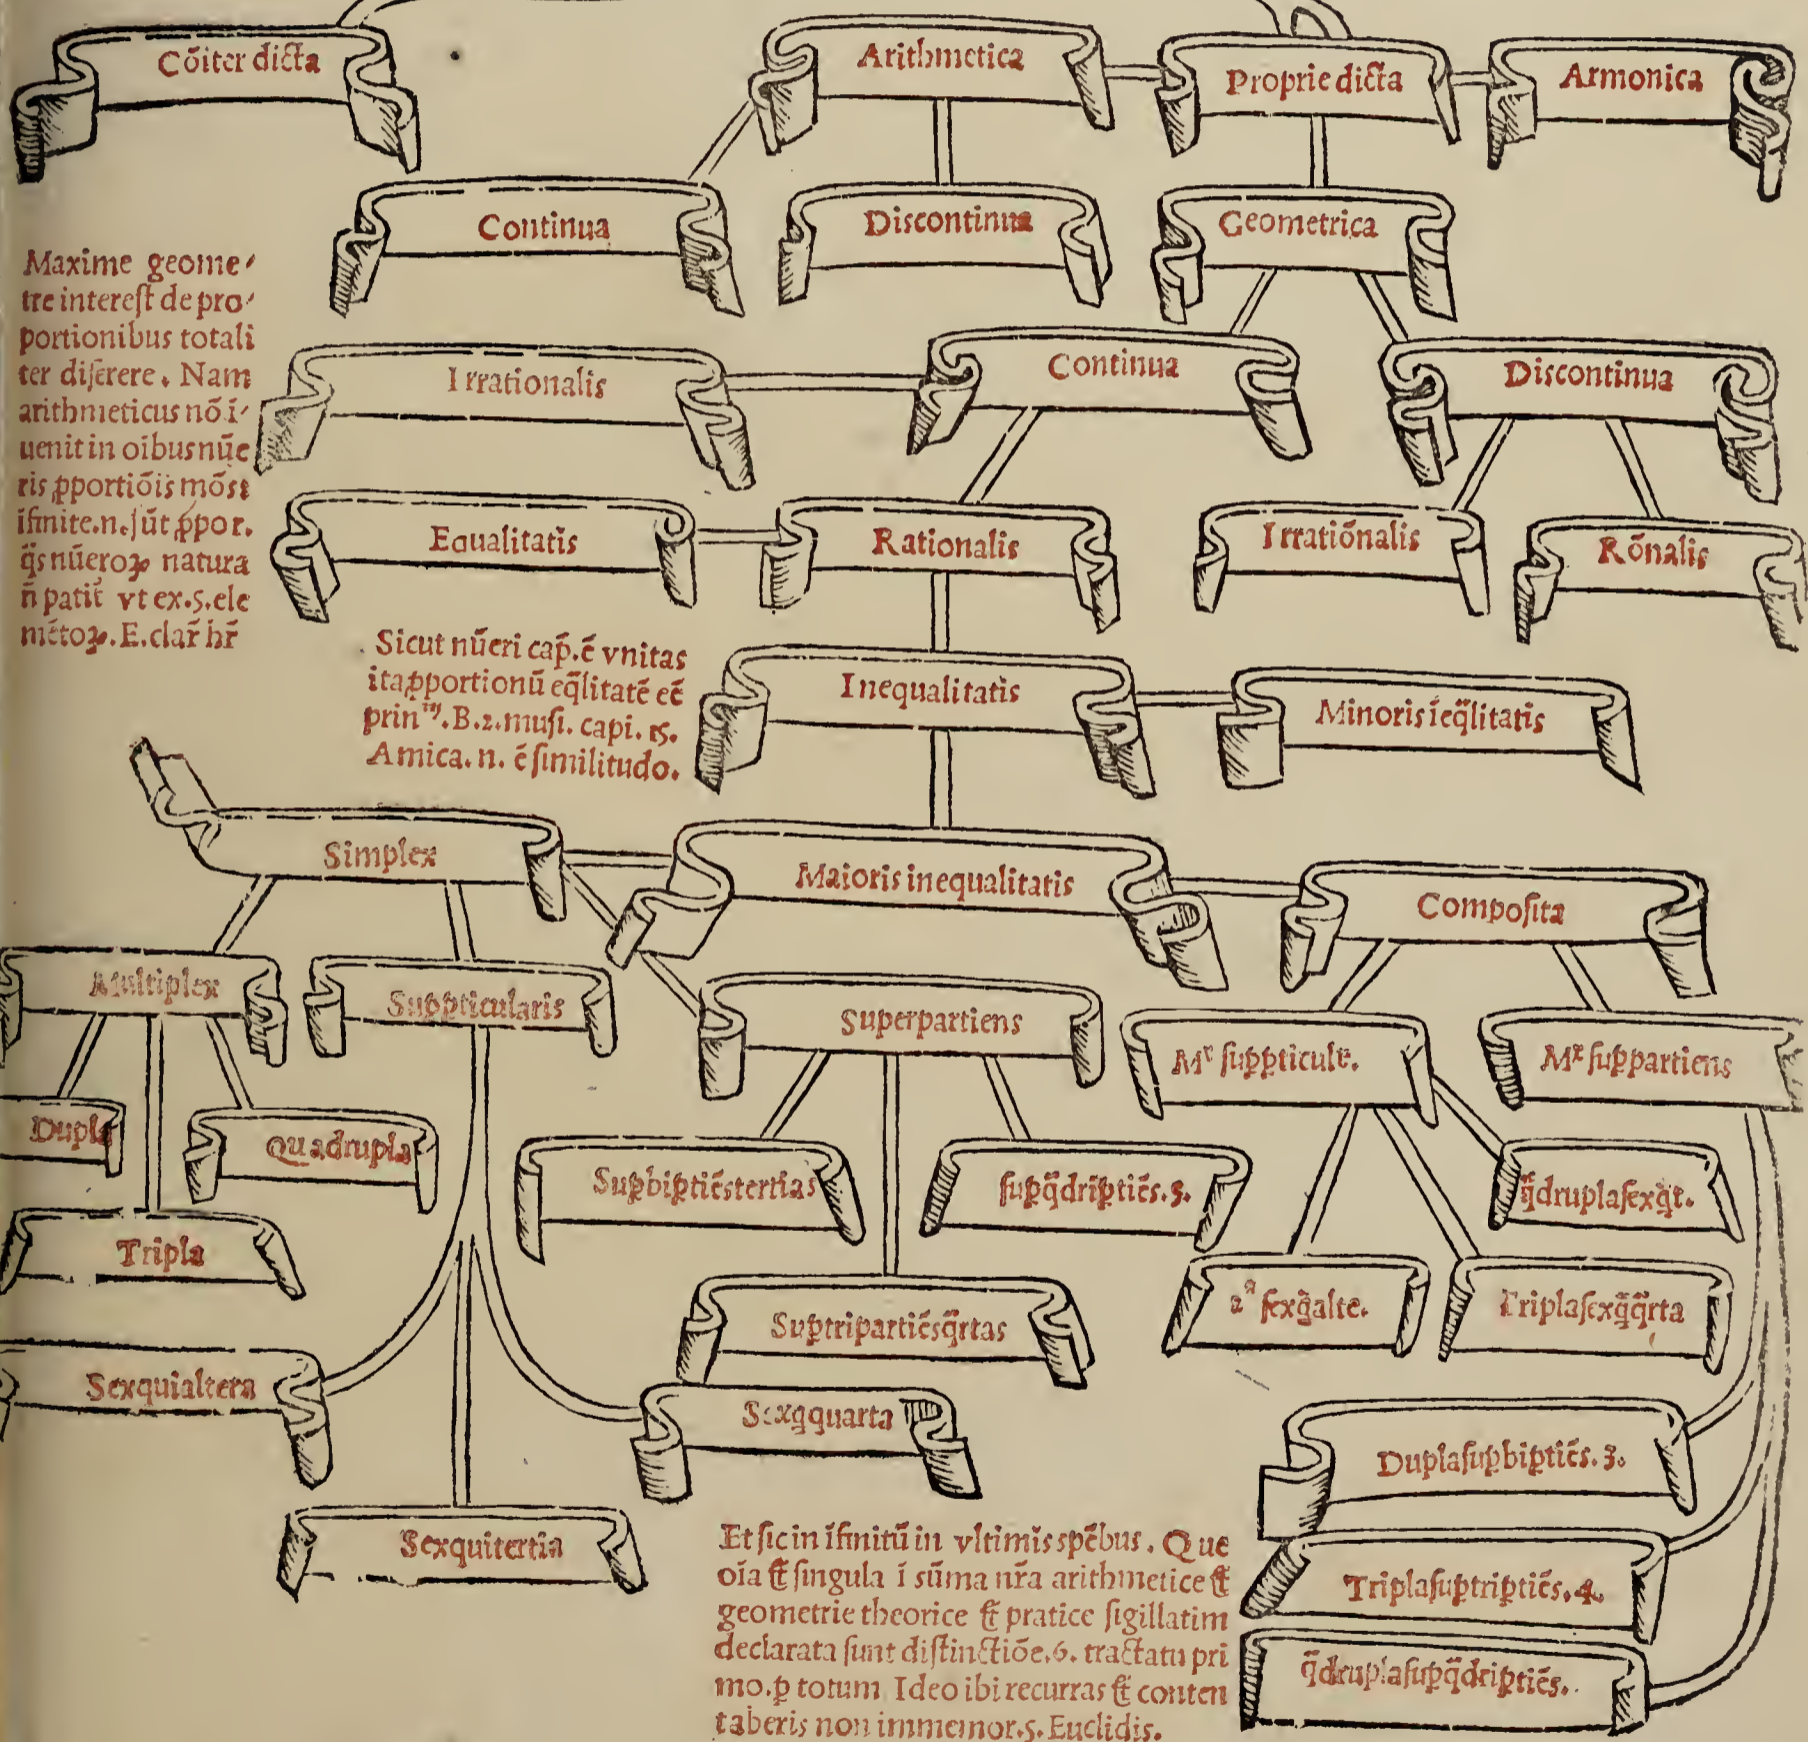 Cõiter dicta
Arithmetica
Proprie dicta
Armonica
Continua
Discontinua
Geometrica
Maxime geome
tre interest de pro
portionibus totali
ter disserere. Nam
arithmeticus nõ ĩ
uenit in oibus nũe
ris ꝓportiõis
ĩfinite.n. sũt ꝓpor.
q̃s nũeroꝝ natura
ñ patit̃ vt ex.5.ele
mẽtoꝝ.E.clar̃ hr̃
Irrationalis
Continua
Discontinua
Equalitatis
Rationalis
Irratiõnalis
Rõnalis
Sicut nũeri cap̃.ẽ vnitas
ita ꝓportionũ eq̃litatẽ eẽ
prin.B.2.musi. capi. 15.
Amica. n. ẽ similitudo.
Inequalitatis
Minoris ĩeq̃litatis
Simplex
Maioris inequalitatis
Composita
Multiplex
Suꝑꝑticularis
Superpartiens
Mˣ suꝑꝑticulr̃.
Mˣ suꝑpartiens
Dupla
Quadrupla
Suꝑbiꝑtiẽstertias
suꝑq̃driꝑtiẽs.5.
q̃druplasexq̃t.
Tripla
Suꝑtripartiẽsq̃rtas
2ᵃ sexq̃alte.
Triplasexq̃q̃rta
Sexquialtera
Sexq̃quarta
Duplasuꝑbiꝑtiẽs.3.
Sexquitertia
Triplasuꝑtriꝑtiẽs.4.
q̃druplasuꝑq̃driꝑtiẽs.
Et sic in ĩfinitũ in vltimis spẽbus. Que
oĩa & singula ĩ sũma nr̃a arithmetice &
geometrie theorice & pratice sigillatim
declarata sunt distinctiõe.6. tractatu pri
mo.ꝑ totum Ideo ibi recurras & conten
taberis non immemor.5. Euclidis.